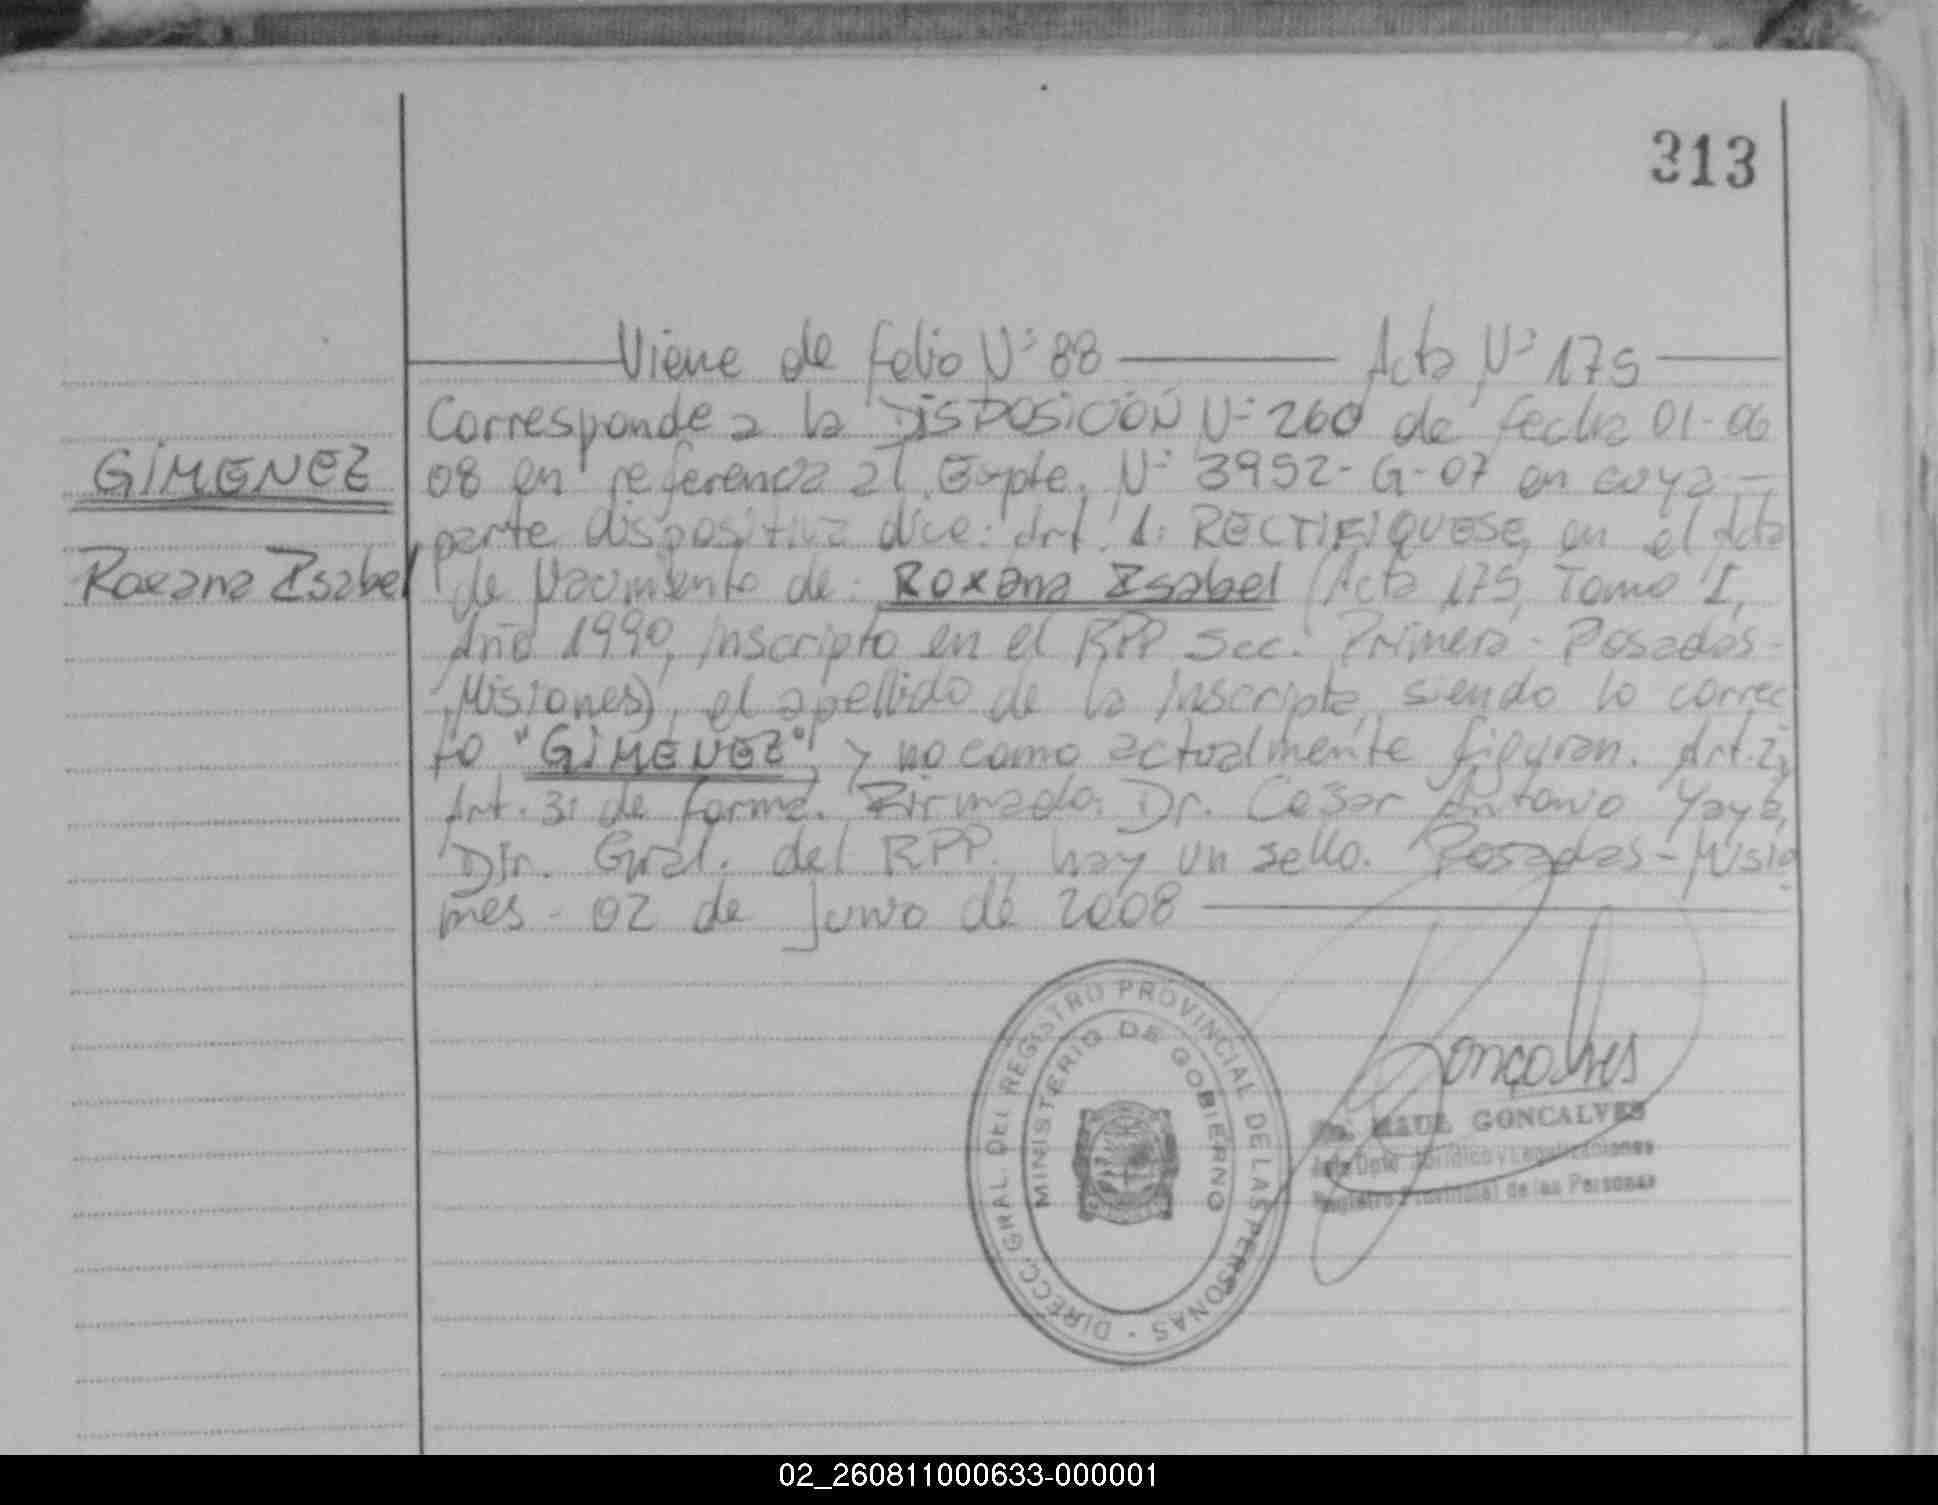 313
Viene de folio Nº 88 Acta Nº 175
Corresponde a la DISPOSICIÓN Nº 260 de fecha 01-06
GIMENEZ
08 en referencia al Expte. Nº 3952-G-07 en cuya
parte dispositiva dice: Art. 1: RECTIFIQUESE, en el Acta
Roxana Isabel
de Nacimiento de: Roxana Isabel (Acta 175, Tomo I,
Año 1990, inscripto en el RPP Sec. Primera - Posadas -
Misiones), el apellido de la inscripta, siendo lo correc
to "GIMENEZ", y no como actualmente figuran. Art. 2,
Art. 3: de forma. Firmado: Dr. Cesar Antonio Yaya,
Dir. Gral. del RPP. hay un sello. Posadas - Misio
nes - 02 de Junio de 2008
DIRECC. GRAL. DEL REGISTRO PROVINCIAL DE LAS PERSONAS
MINISTERIO DE GOBIERNO
Gonçalves
RAUL GONCALVES
Jefe Dpto. Jurídico y Legalizaciones
Registro Provincial de las Personas
02_260811000633-000001